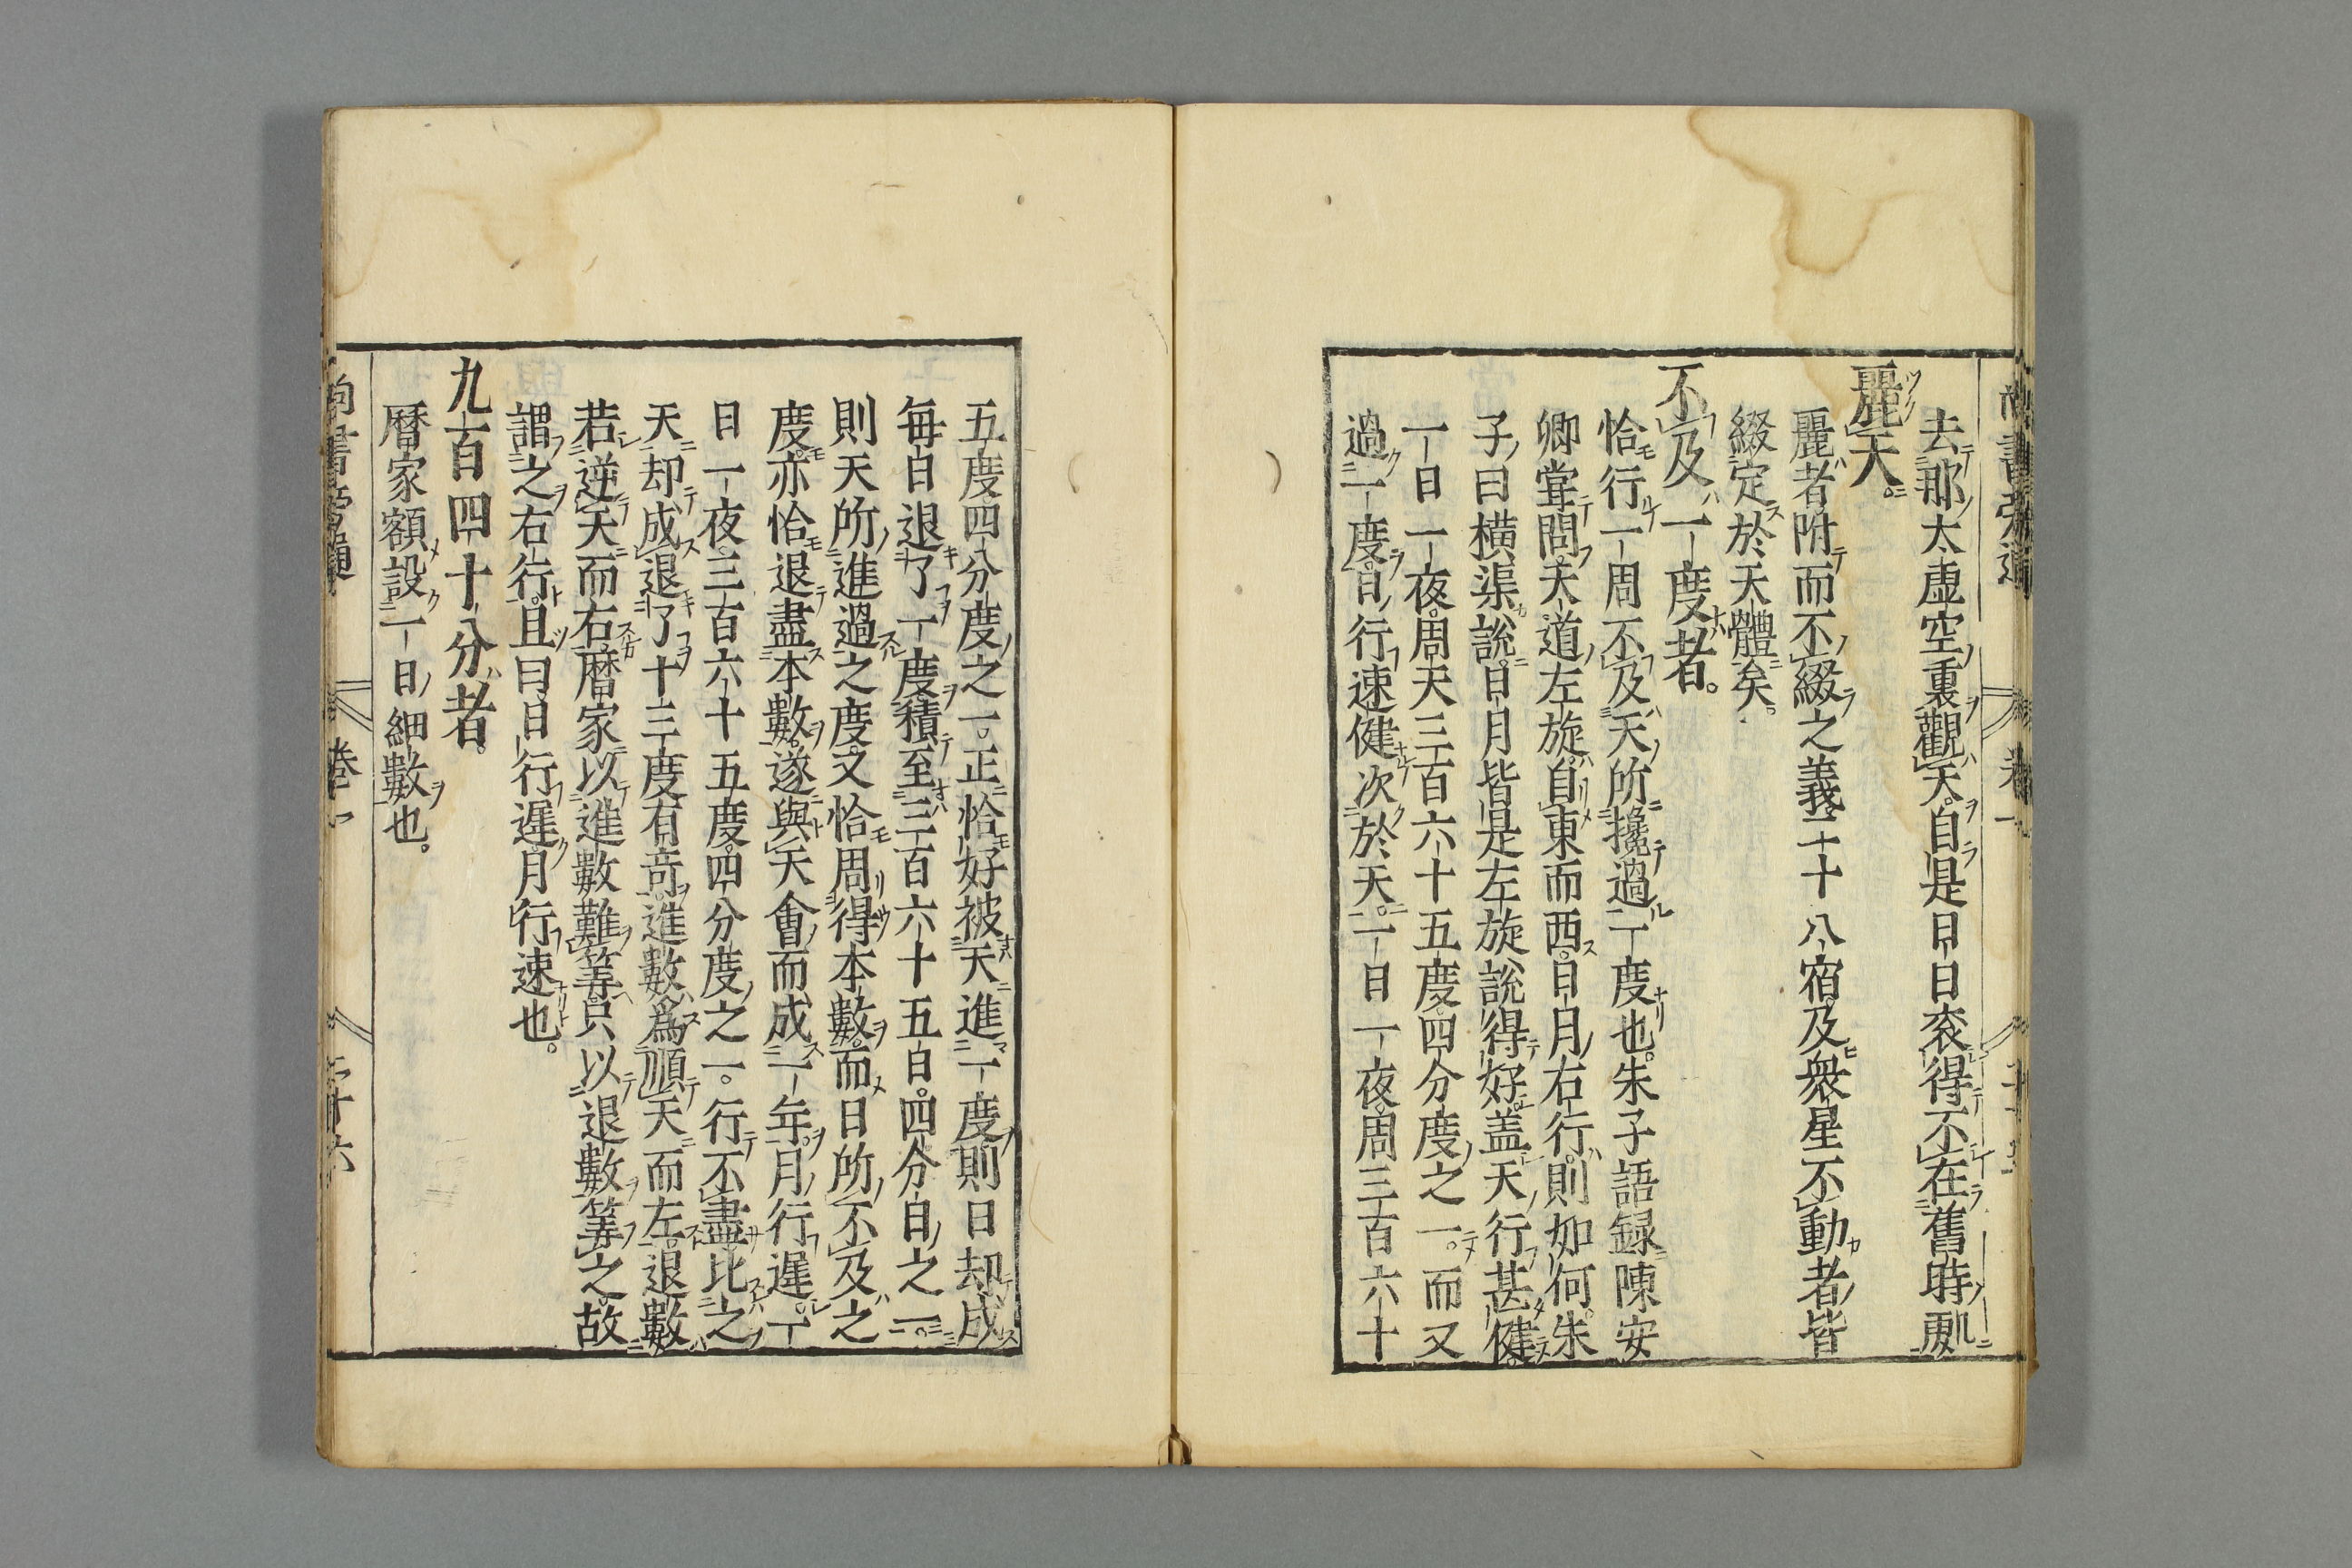 去那太虚空裏觀天自是日日衮得不在舊時處
麗天。
麗者附而不綴之義。二十八宿及衆星不動者皆
綴定於天體矣。
不及一度者。
恰行一周不及天所攙過一度也。朱子語録陳安
卿甞問。天道左旋。自東而西。日月右行。則如何。朱
子曰横渠説。日月皆是左旋説得好。盖天行甚健。
一日一夜。周天三百六十五度四分度之一。而又
過一度。日行速健次於天。一日一夜。周三百六十
五度四分度之一。正恰好被天進一度則日却成
毎日退了一度。積至三百六十五日。四分日之一。
則天所進過之度。又恰周得本數。而日所不及之
度。亦恰退盡本數。遂與天會而成一年。月行遲。一
日一夜。三百六十五度。四分度之一。行不盡。比之
天却成退了十三度有竒。進數爲順天而左。退數
若逆天而右。曆家以進數難筭。只以退數筭之。故
謂之右行。且曰日行遲月行速也。
九百四十分者。
曆家額設一日細數也。